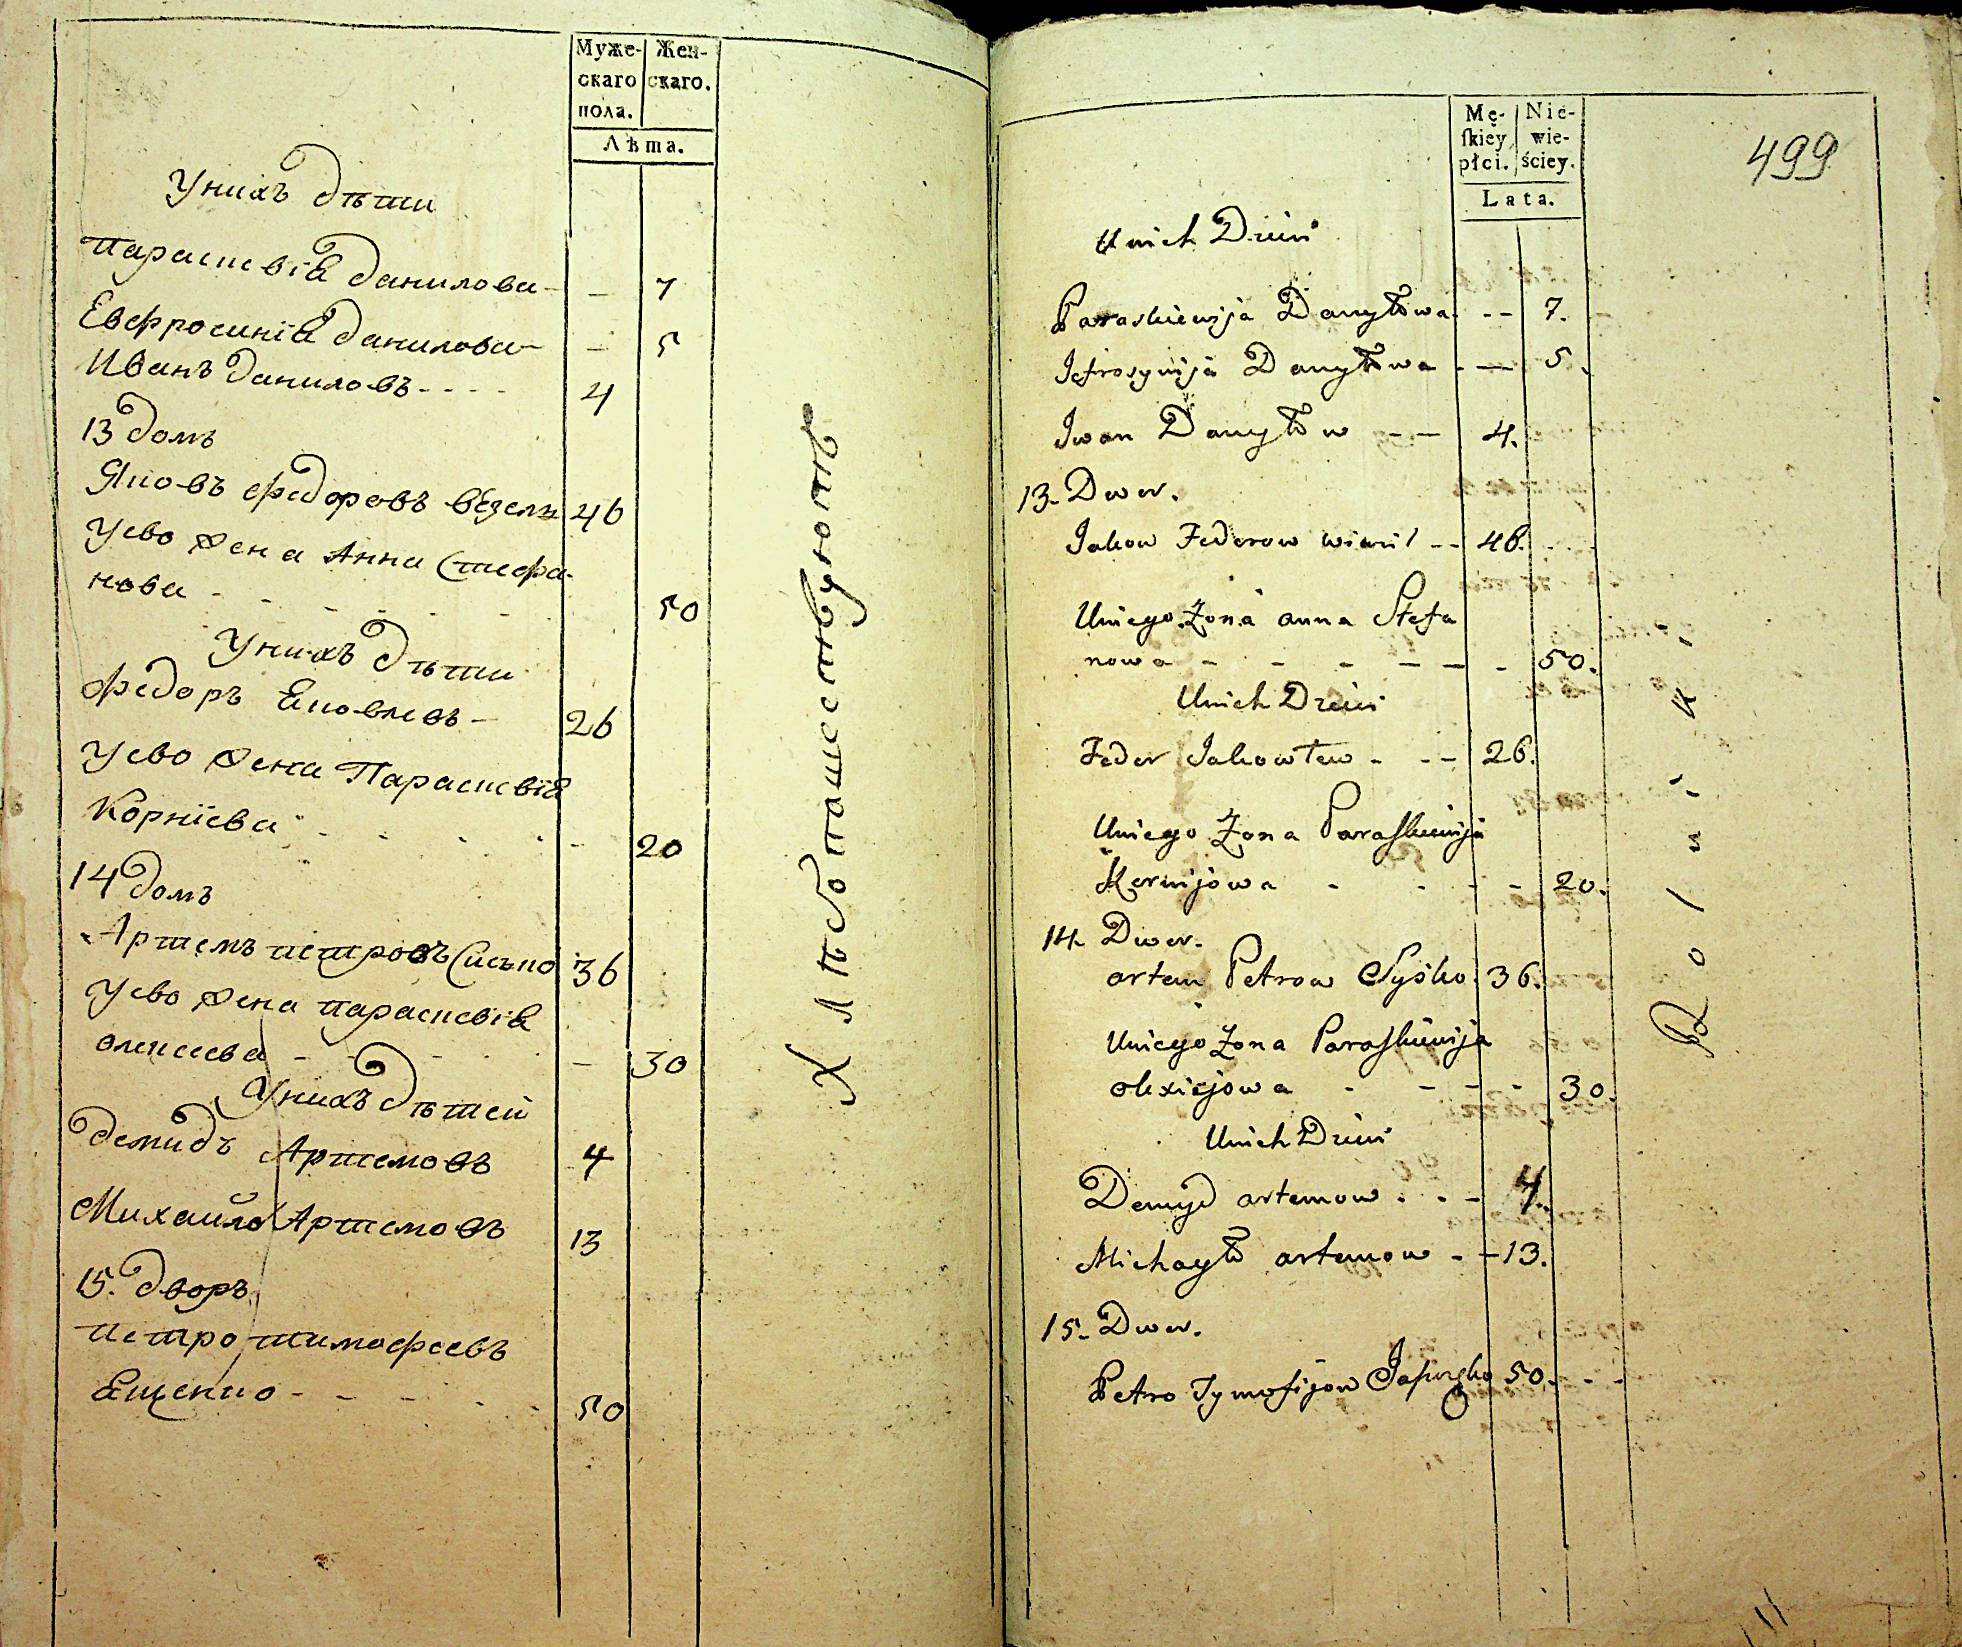 Муже-
скаго
пола.
Жен-
скаго.
Лѣта.
Унихъ дѣти
параскевіѧ данилова - - 7
Евфросиніѧ данилова - - 5
Иванъ даниловъ - - - - 4
13 домъ
Яковъ федоровъ 46
Уево жена Анна Стефа-
нова - - - - - - 50
Унихъ дѣти
федоръ Ѧковлевъ - 26
Уево жена Параскевіѧ
Корніева - - - - - 20
14 домъ
Артемъ петровъ Сисько 36
Уево жена параскевіѧ
олексеева - - - - 30
Унихъ дѣтей
демидъ Артемовъ 4
Михайло Артемовъ 13
15. дворъ
петро тимофеевъ
Ѧщенко - - - - - 50
Хлѣбопашествуютъ
Mę-
skiey
płci.
Nie-
wie-
ściey.
Lata.
499
Unich Dzieci
Paraskiewija Danyłowa - - 7.
Jefrosynija Danyłowa - — 5.
Iwan Danyłow - — 4.
13. Dwor.
Jakow Fedorow - - 46.
Uniego Żona anna Stefa
nowa - - - — — - 50.
Unich Dzieci
Fedor Jakowlew - - - 26.
Uniego Żona Paraskiewija
Kornijowa - - - - 20.
14. Dwor.
artem Petrow Syśko. 36.
Uniego Żona Paraskiewija
olexiejowa - - - - 30.
Unich Dzieci
Demyd artemow . . - 4.
Michayło artemow - - 13.
15. Dwor.
Petro Tymofijow 50. - -
Rolnik